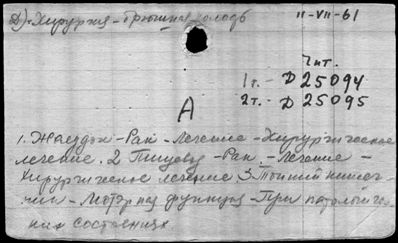 Д). Хирургия - Брюшная полость
11-VII-61
Чит.
1т. - Д25094
2т. - Д25095
А
1. Желудок - Рак - Лечение - Хирургическое
лечение. 2 Пищевод - Рак. - Лечение -
Хирургическое лечение. 3. Тонкий кишеч
ник - функция - При патологичес
ких состояниях